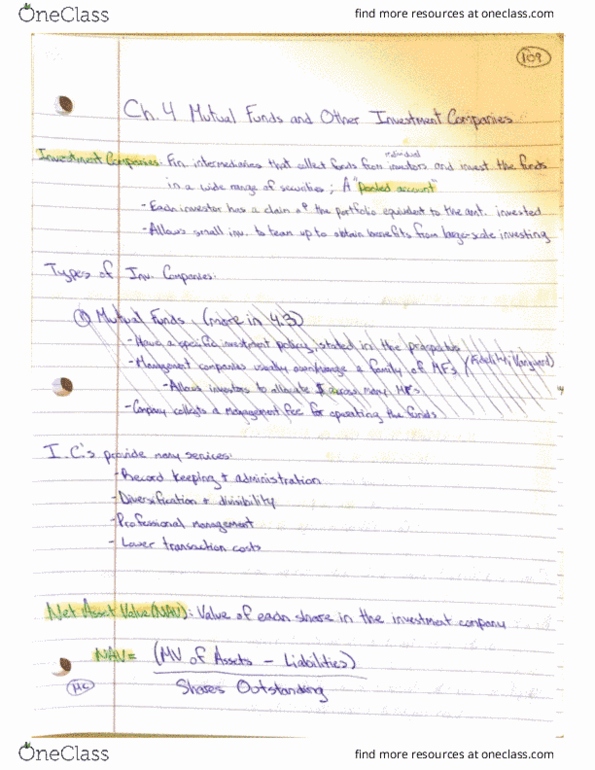 OneClass
find more resources at oneclass.com
109
Ch. 4 Mutual Funds and Other Investment Companies
individual
Investment Companies: Fin. intermediaries that collect funds from investors and invest the funds
in a wide range of securities; A "pooled account"
- Each investor has a claim of the portfolio equivalent to the amt. invested
- Allows small inv. to team up to obtain benefits from large-scale investing
Types of Inv. Companies:
① Mutual Funds: (more in 4.3)
- Have a specific investment policy, stated in the prospectus
- Management companies usually own/manage a family of MFs (Fidelity, Vanguard)
- Allows investors to allocate $ across many MFs
- Company collects a management fee for operating the funds
I.C.'s provide many services:
- Record keeping + administration
- Diversification + divisibility
- Professional management
- Lower transaction costs
Net Asset Value (NAV): Value of each share in the investment company
NAV = (MV of Assets - Liabilities)
Shares Outstanding
MC
OneClass
find more resources at oneclass.com